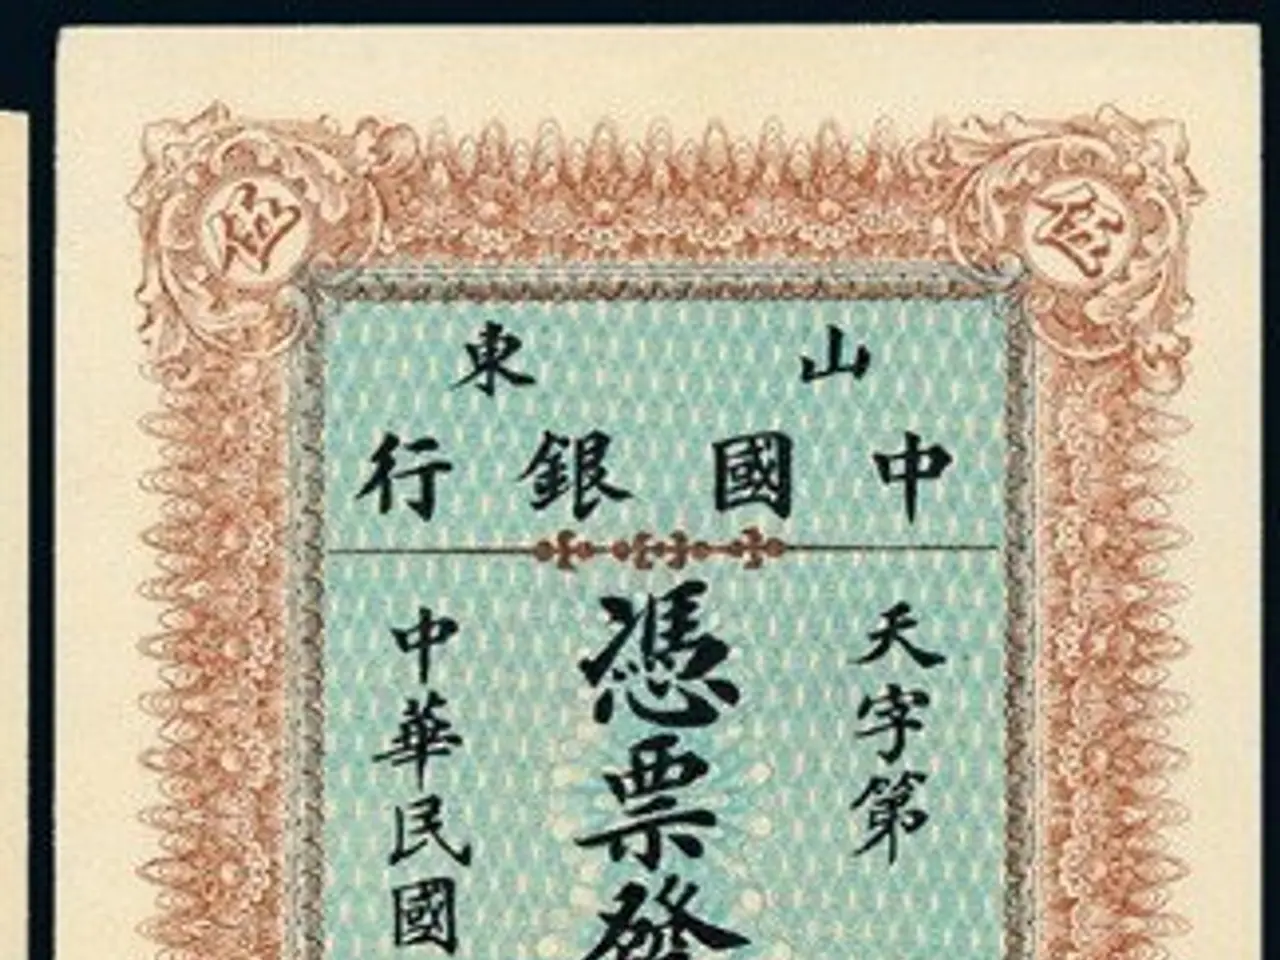 伍
伍
山東
中國銀行
天字第
憑票發
中華民國